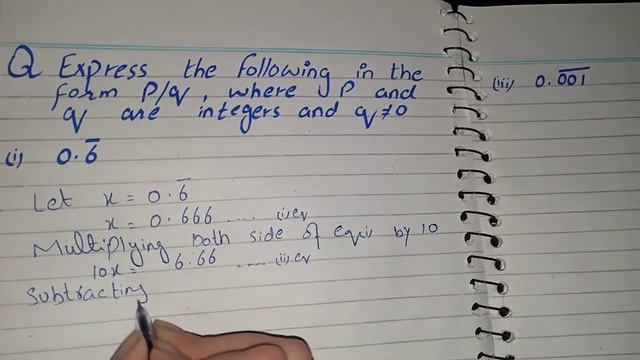 Q Express the following in the
form P/q, where P and
q are integers and q≠0
(i) 0.6̅
Let x = 0.6̅
x = 0.666 .... (i) eq
Multiplying both side of eq(i) by 10
10x = 6.66 .... (ii) eq
Subtracting
(iii) 0.0̅0̅1̅